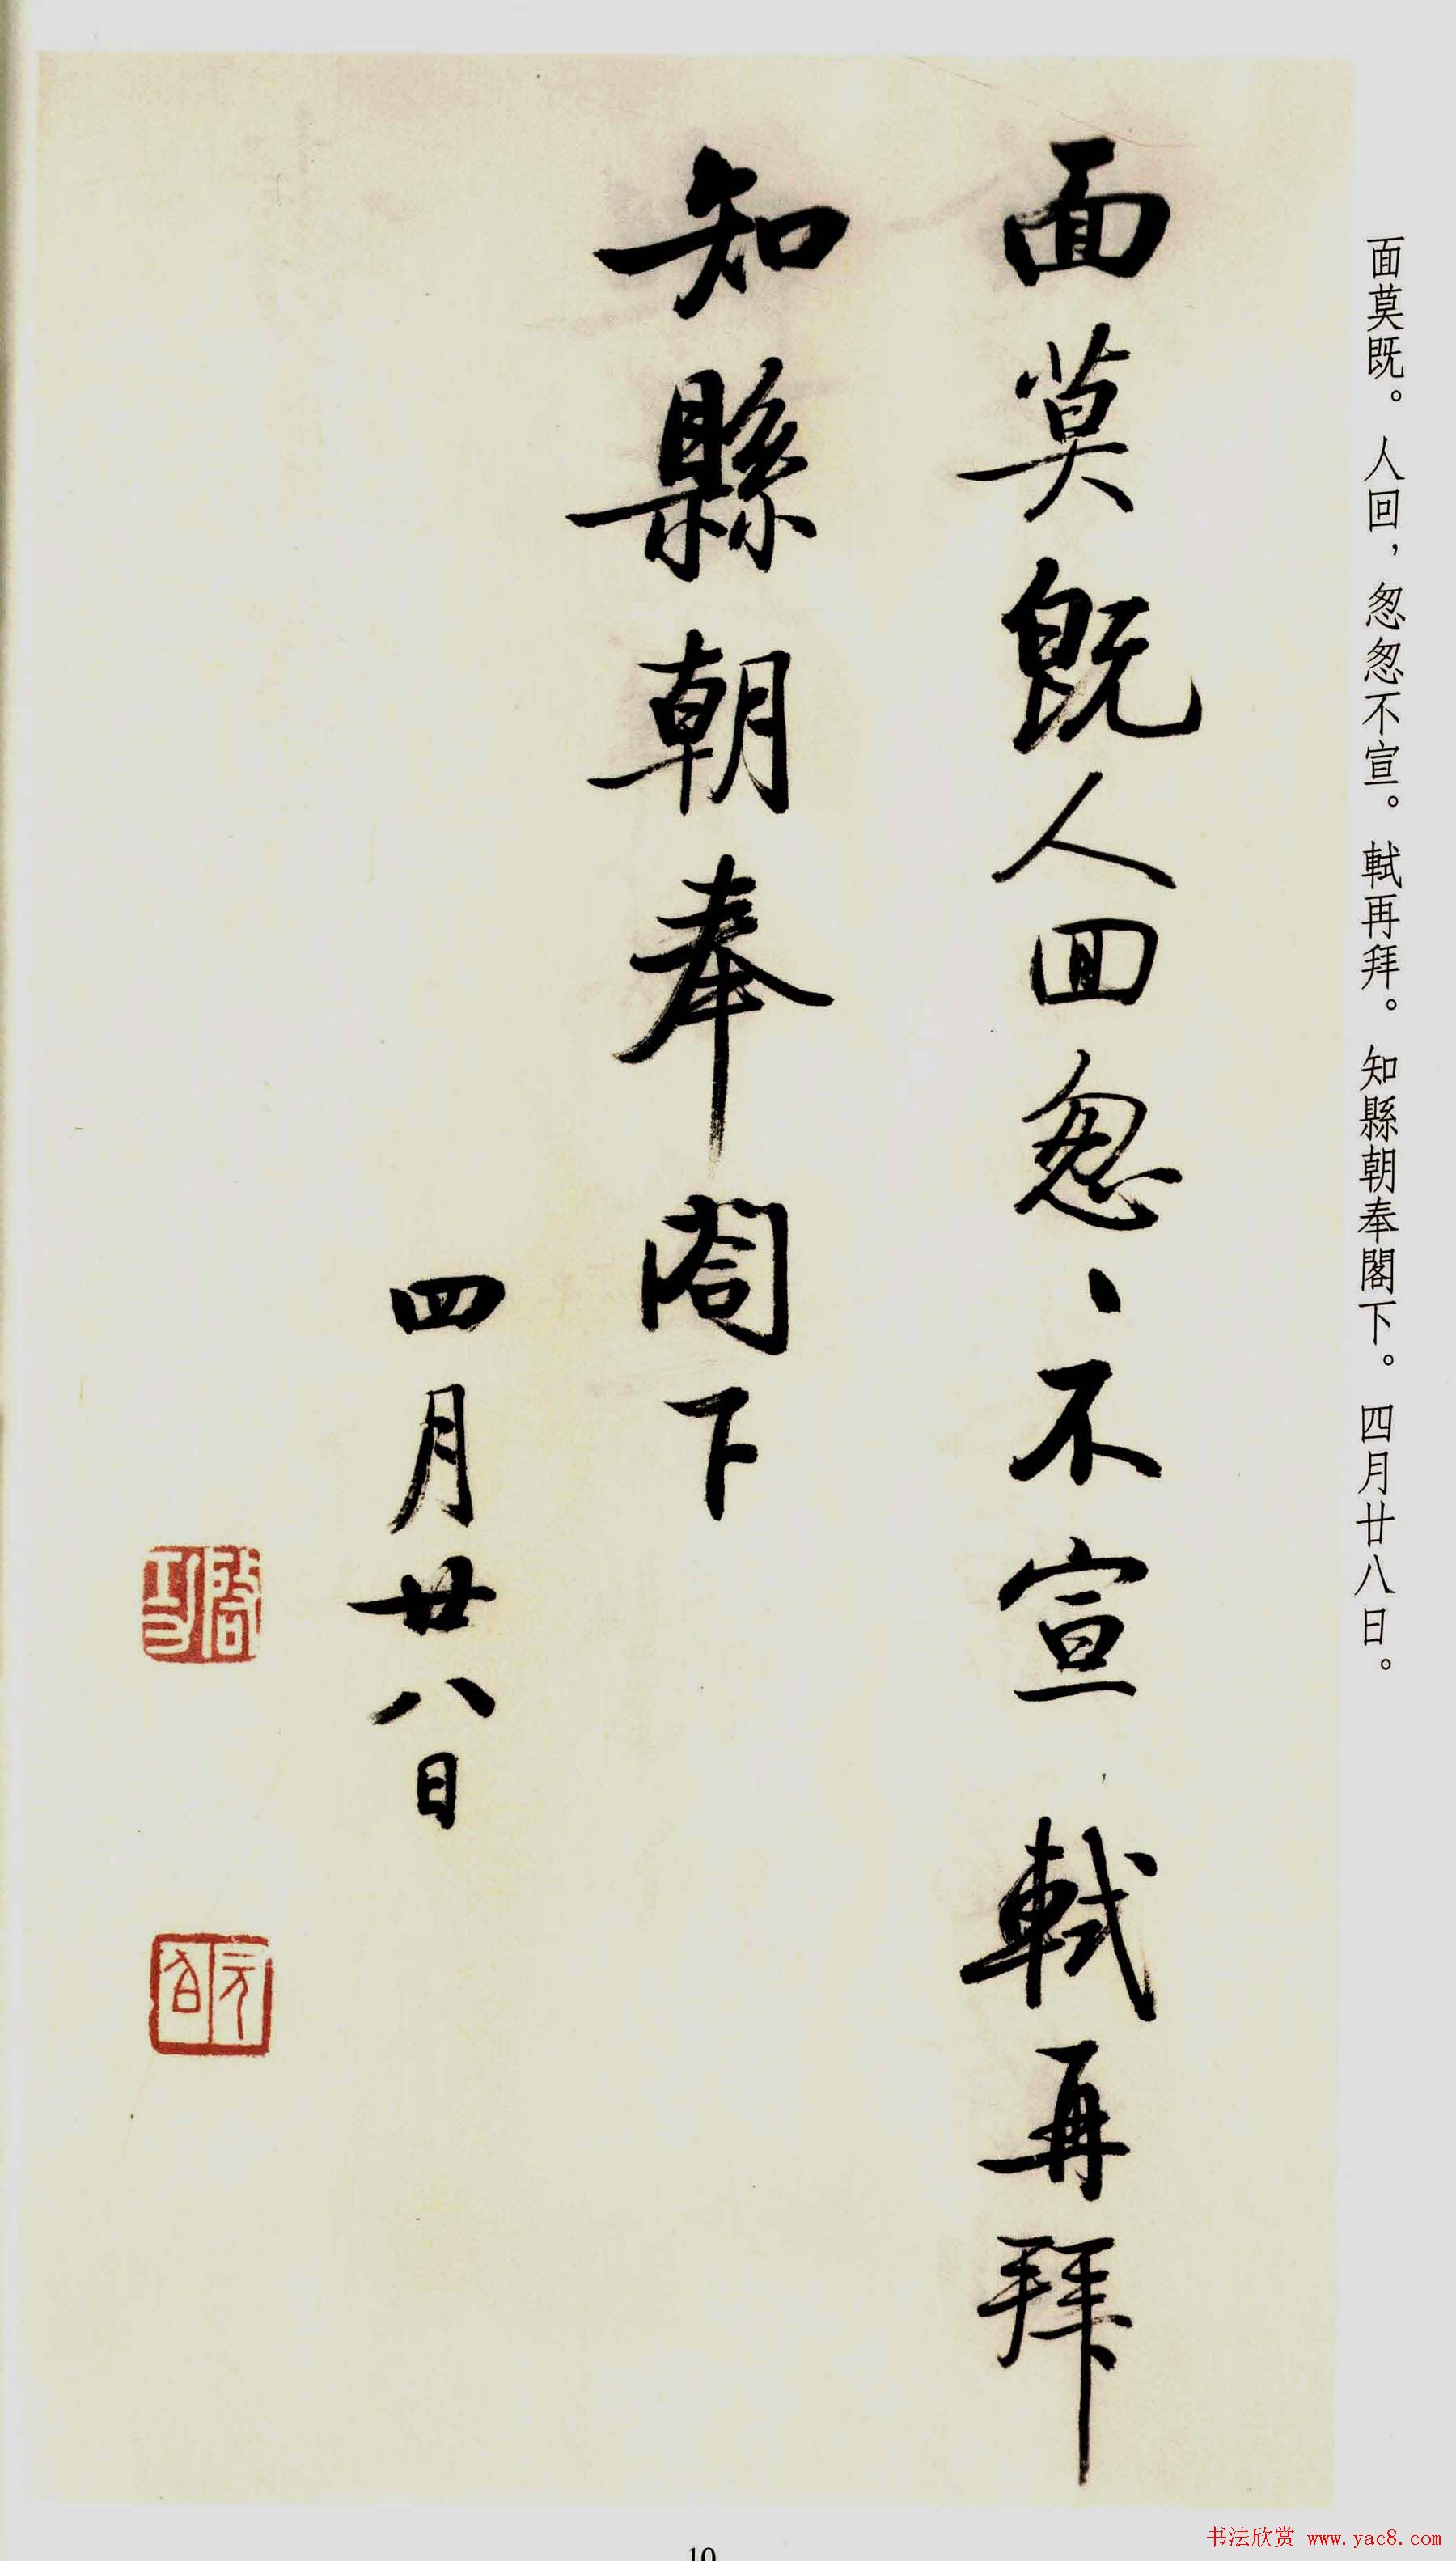 面莫既。人回，怱怱不宣。軾再拜。知縣朝奉閣下。四月廿八日。
面莫既人回怱、不宣 軾再拜
知縣朝奉閣下
四月廿八日
10
书法欣赏 www.yac8.com